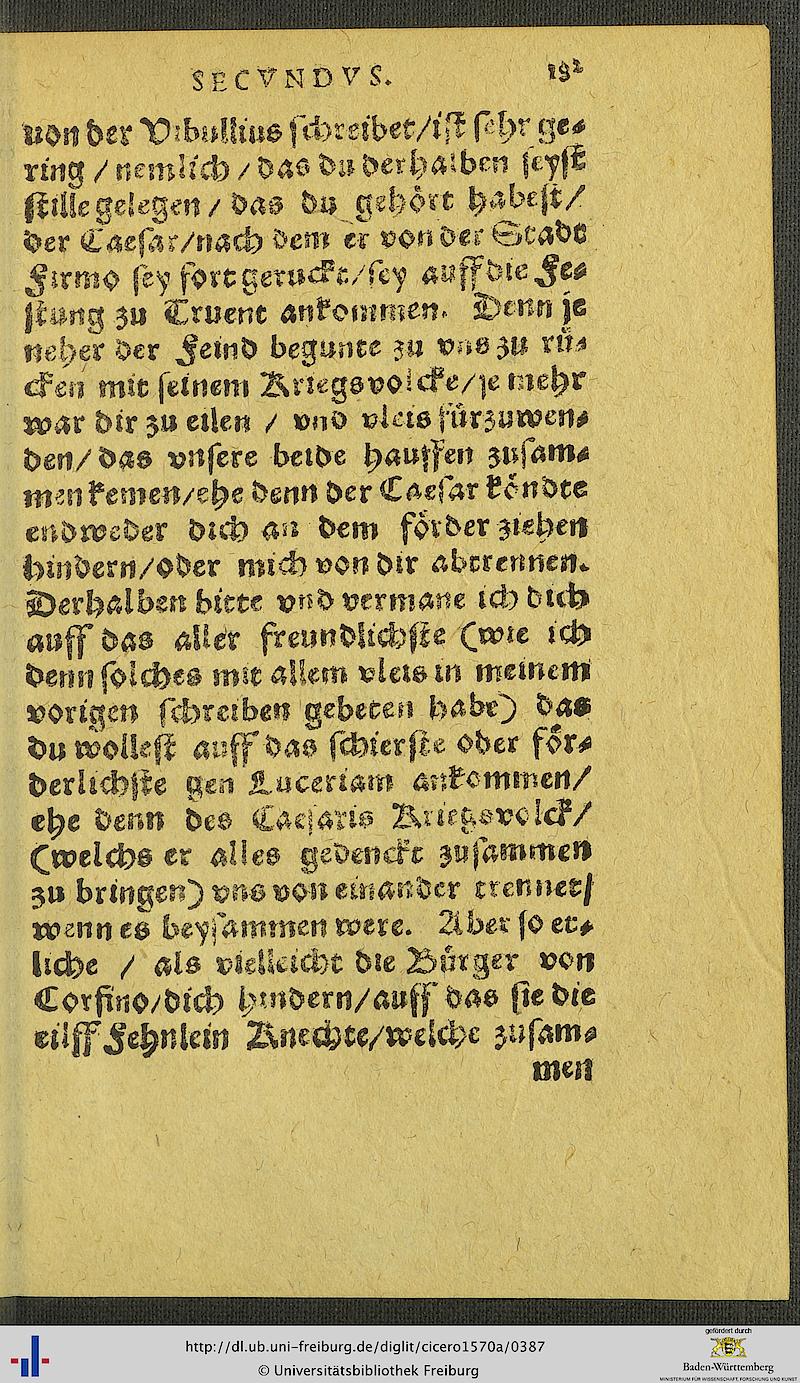 SECVNDVS. 192
von der Vibullius ſchreibet/iſt ſehr ge⸗
ring / nemlich / das du derhalben ſeyſt
ſtille gelegen / das du gehoͤrt habeſt/
der Caeſar/nach dem er von der Stadt
Firmo ſey fort geruckt/ſey auff die Fe⸗
ſtung zu Truent ankommen. Denn je
neher der Feind begunte zu vns zu ruͤ⸗
cken mit ſeinem Kriegsvolcke/je mehr
war dir zu eilen / vnd vleis fuͤrzuwen⸗
den/ das vnſere beide hauffen zuſam⸗
men kemen/ehe denn der Caeſar koͤndte
endweder dich an dem foͤrder ziehen
hindern/oder mich von dir abtrennen.
Derhalben bitte vnd vermane ich dich
auff das aller freundlichſte (wie ich
denn ſolches mit allem vleis in meinem
vorigen ſchreiben gebeten habe) das
du wolleſt auff das ſchierſte oder foͤr⸗
derlichſte gen Luceriam ankommen/
ehe denn des Caeſaris Kriegsvolck/
(welchs er alles gedenckt zuſammen
zu bringen) vns von einander trennet/
wenn es beyſammen were. Aber ſo et⸗
liche / als vielleicht die Buͤrger von
Corfino/dich hindern/auff das ſie die
eilff Fehnlein Knechte/welche zuſam⸗
men
http://dl.ub.uni-freiburg.de/diglit/cicero1570a/0387
© Universitätsbibliothek Freiburg
gefördert durch
Baden-Württemberg
MINISTERIUM FÜR WISSENSCHAFT, FORSCHUNG UND KUNST